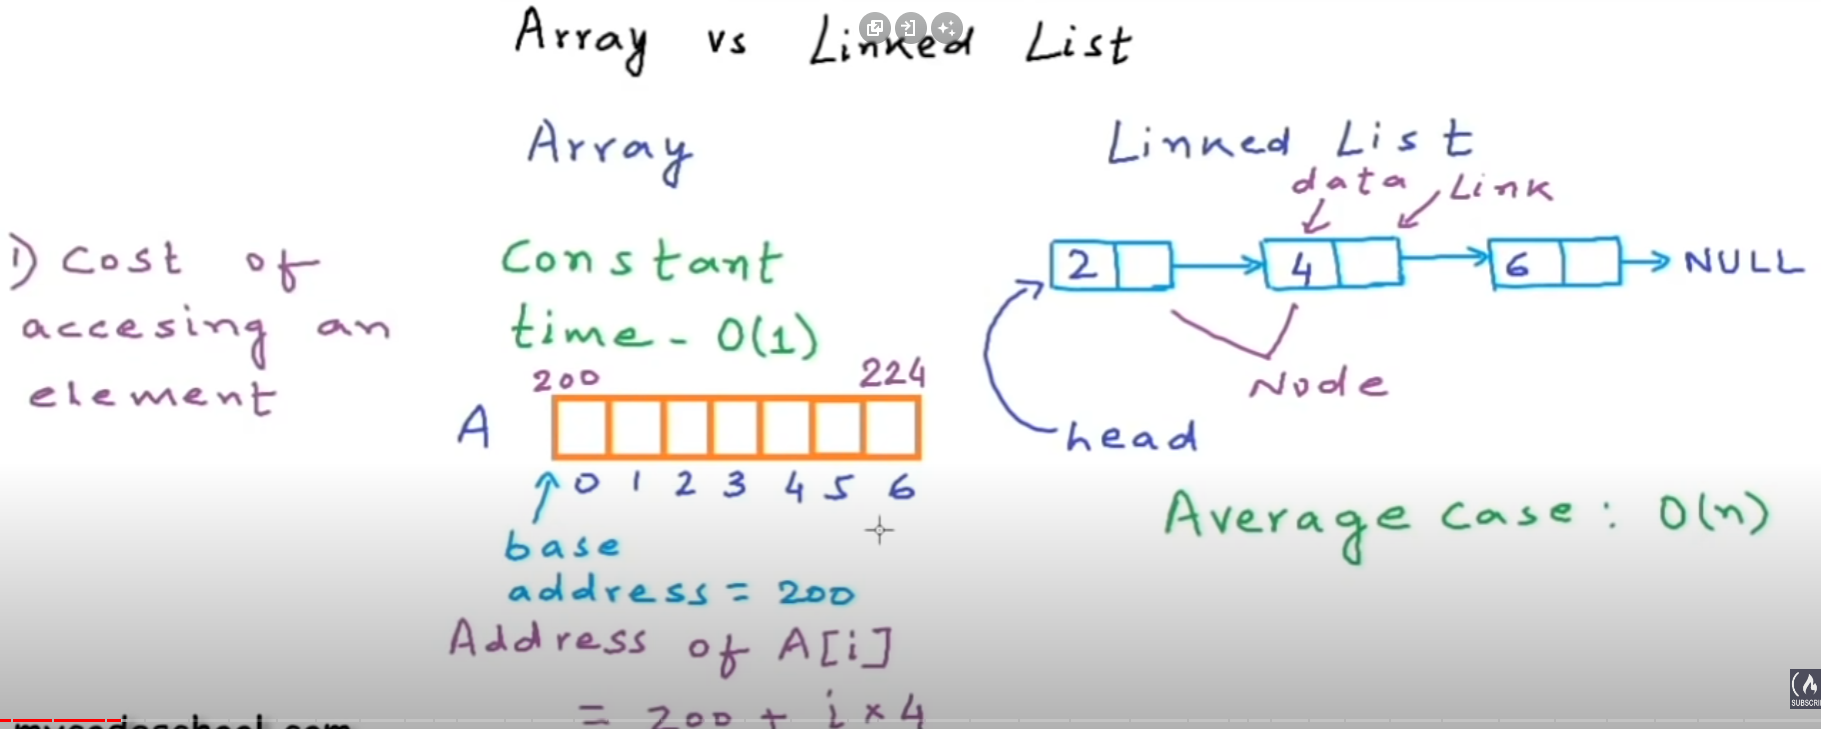 Array vs Linked List
Array
Linked List
data
Link
1) Cost of
accesing an
element
Constant
time - O(1)
200
224
A
0 1 2 3 4 5 6
base
address = 200
Address of A[i]
= 200 + i × 4
2
4
6
NULL
Node
head
Average case : O(n)
mycodeschool.com
SUBSCRI